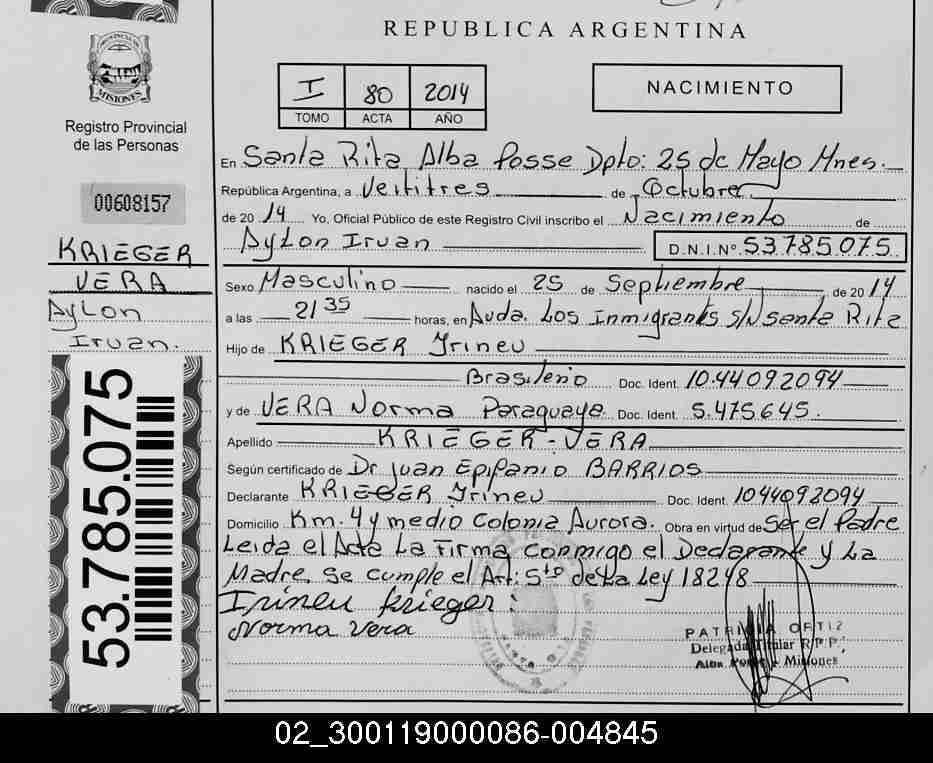 REPUBLICA ARGENTINA
PROVINCIA DE
MISIONES
Registro Provincial
de las Personas
00608157
KRIEGER
VERA
Aylon
Iruan.
53.785.075
I 80 2014
TOMO ACTA AÑO
NACIMIENTO
En Santa Rita Alba Posse Dpto: 25 de Mayo Mnes.
República Argentina, a Veititres de Octubre
de 20 14 Yo, Oficial Público de este Registro Civil inscribo el Nacimiento de
Aylon Iruan D.N.I.Nº 53.785.075
Sexo Masculino nacido el 25 de Septiembre de 20 14
a las 21 35 horas, en Auda. Los Inmigrantes S/N Santa Rita
Hijo de KRIEGER Irineu
Brasileño Doc. Ident. 10.44.09.2094
y de VERA Norma Paraguaya Doc. Ident. 5.475.645.
Apellido KRIEGER-VERA
Según certificado de Dr Juan Epifanio BARRIOS
Declarante KRIEGER Irineu Doc. Ident. 1044092094
Domicilio Km. 4 y medio Colonia Aurora. Obra en virtud de Ser el Padre
Leida el Acta La Firma Conmigo el Declarante y La
Madre, Se cumple el Art: 5to de La Ley 18248
Irineu krieger:
Norma Vera
PATRICIA ORTIZ
Delegada Titular R.P.P.
Alba Posse - Misiones
02_300119000086-004845